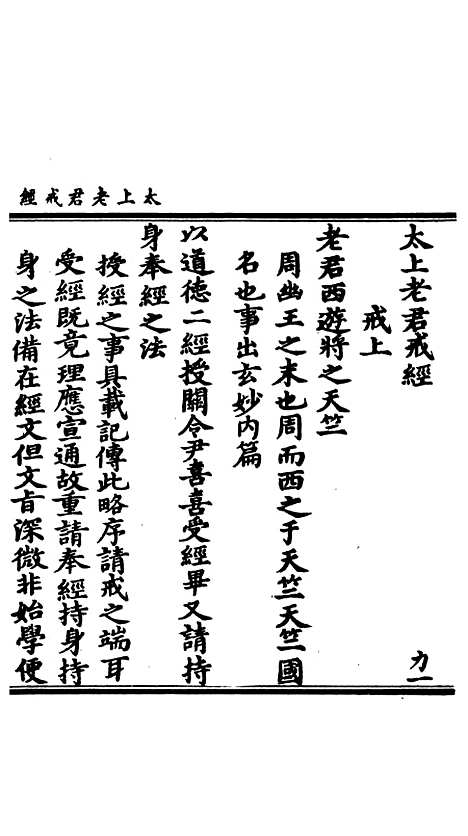 太上老君戒經
太上老君戒經
力一
戒上
老君西遊將之天竺
周幽王之末也周而西之于天竺天竺國
名也事出玄妙內篇
以道德二經授關令尹喜喜受經畢又請持
身奉經之法
授經之事具載記傳此略序請戒之端耳
受經既竟理應宣通故重請奉經持身持
身之法備在經文但文旨深微非始學便